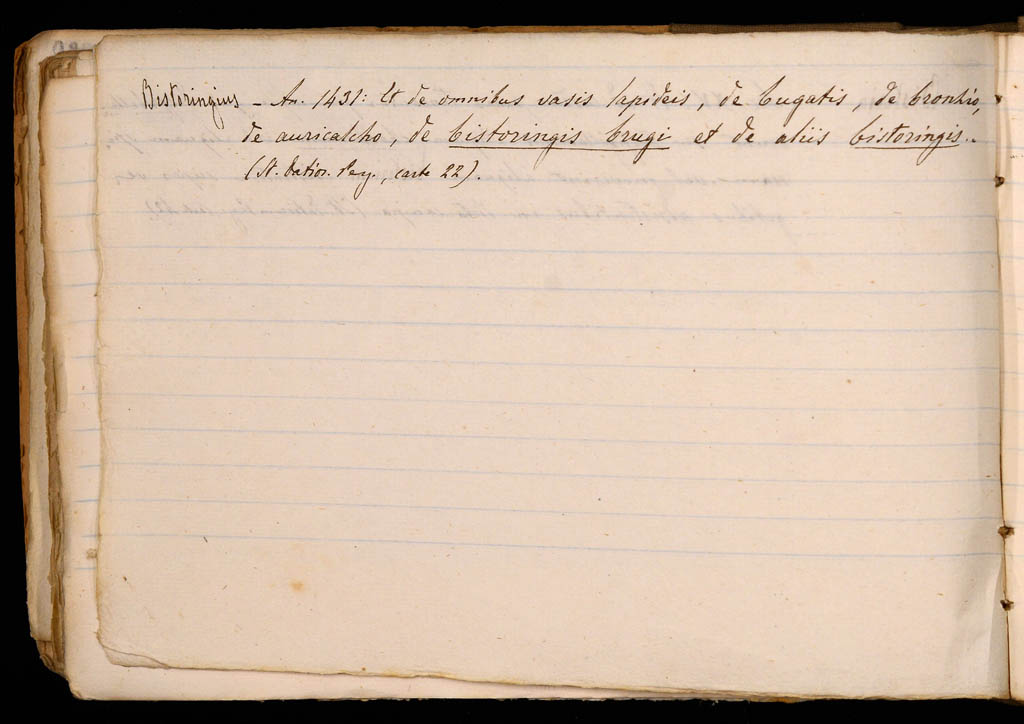 Bistoringius - An. 1431: Et de omnibus vasis lapideis, de bugatis, de bronhio,
de auricalcho, de bistoringis brugi et de aliis bistoringis..
(St. dation. Rey., carte 22).